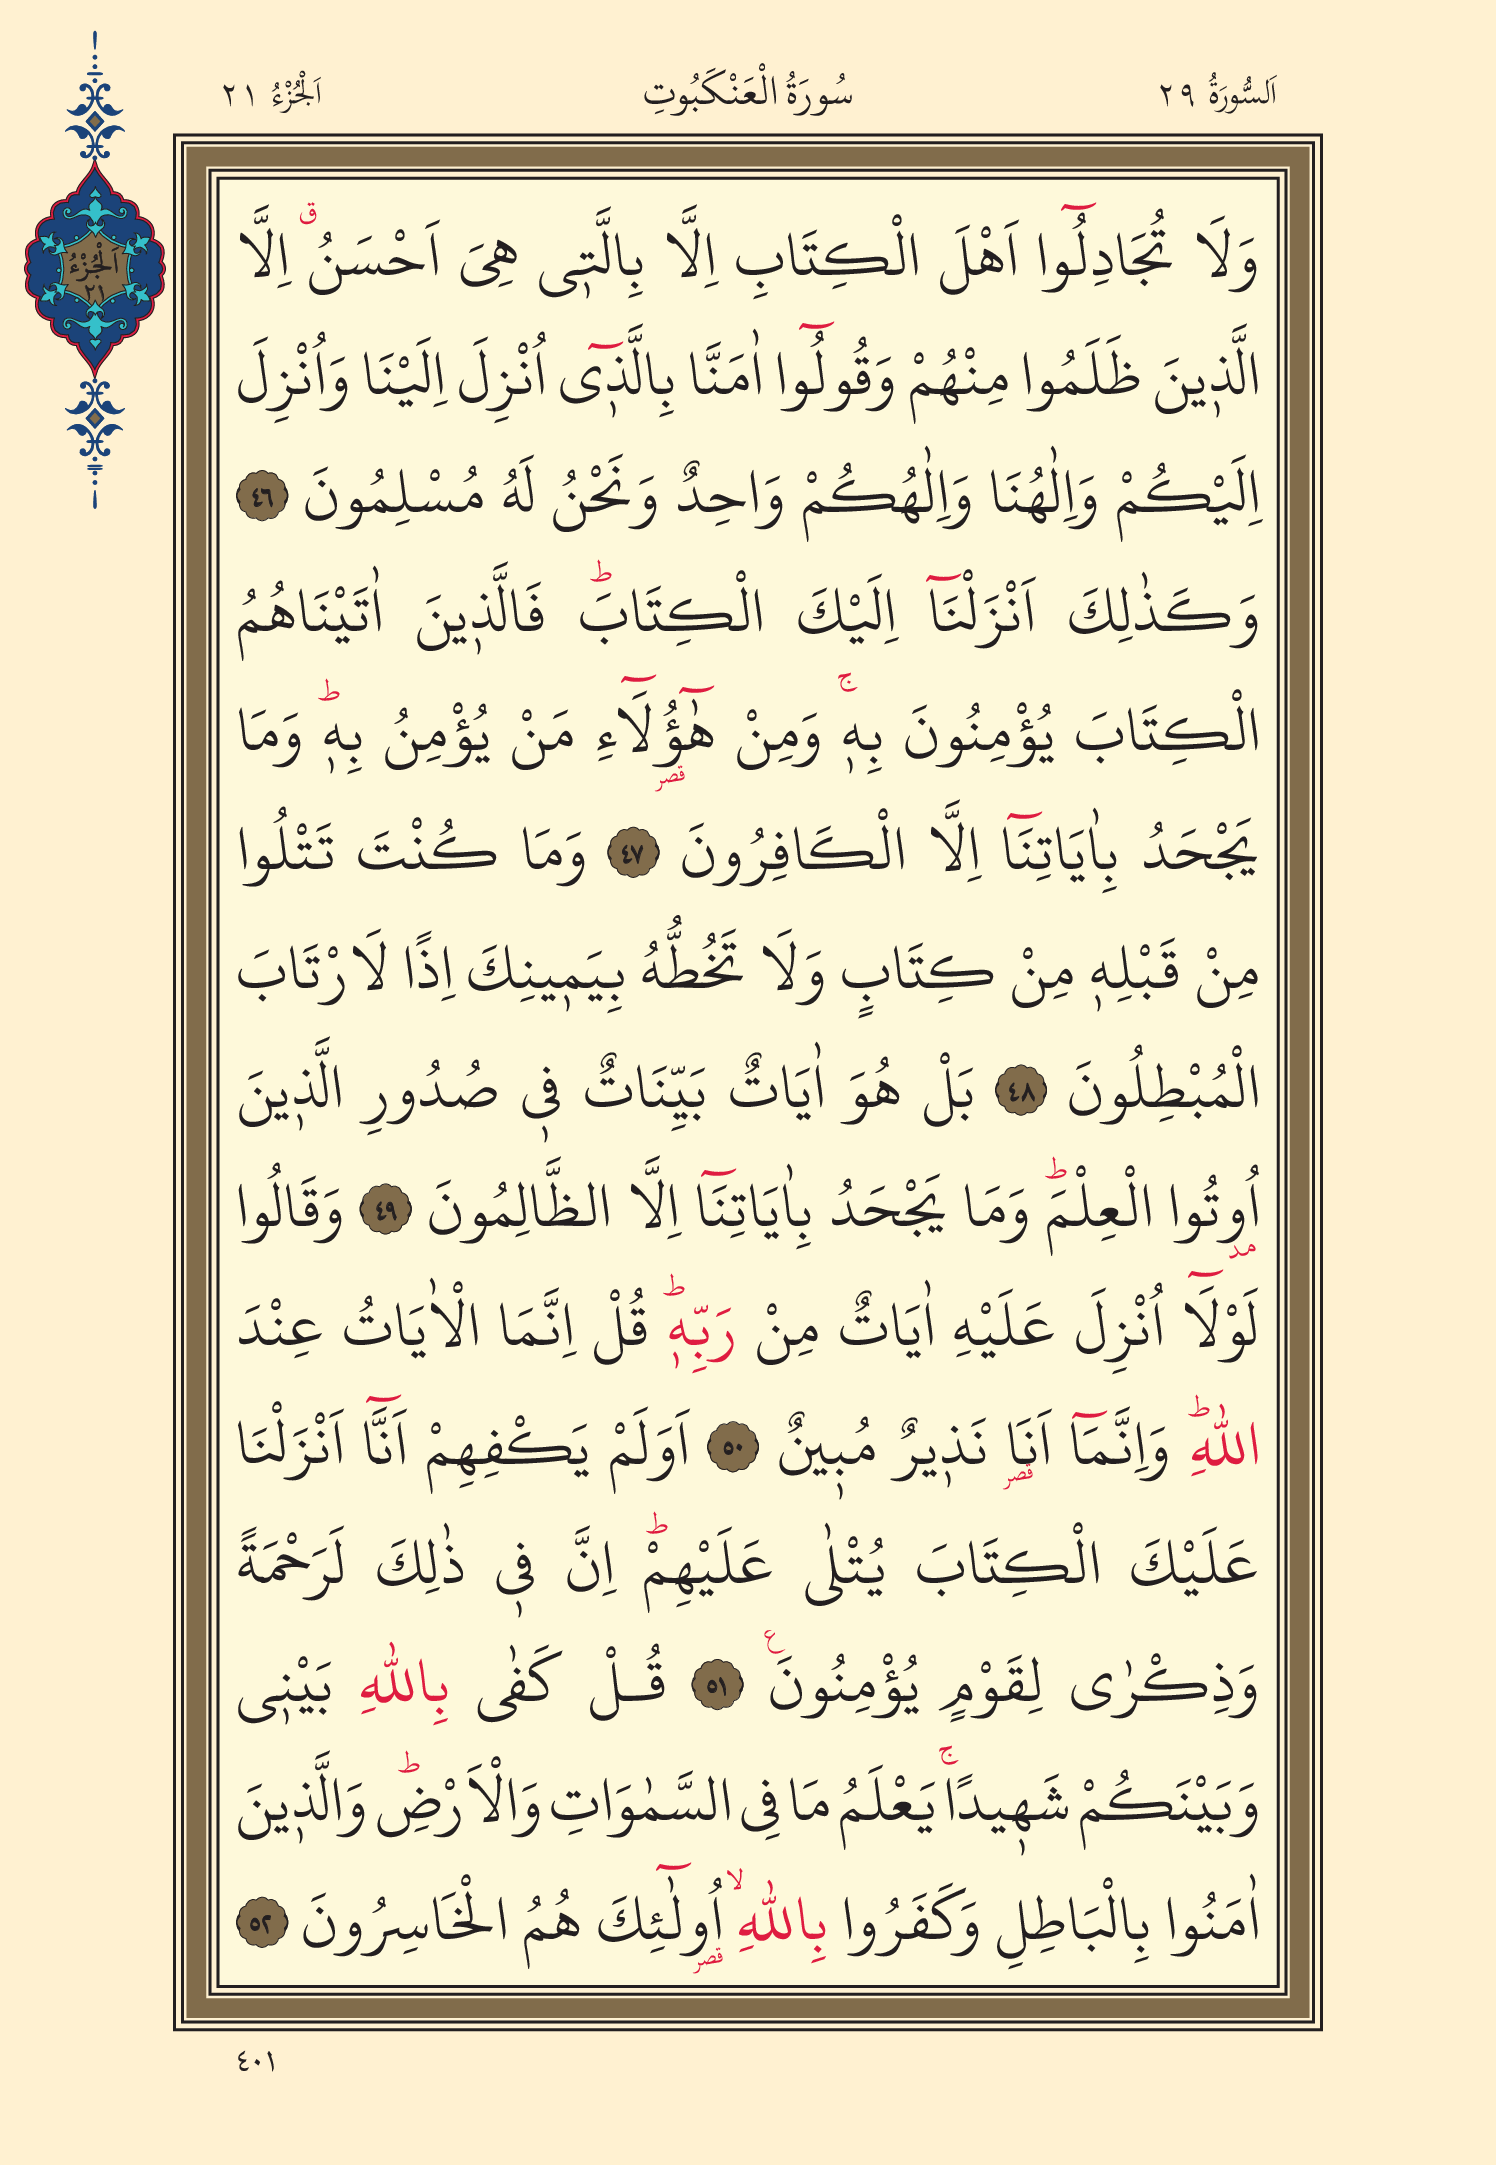 اَلسُّورَةُ ٢٩
سُورَةُ الْعَنْكَبُوتِ
اَلْجُزْءُ ٢١
اَلْجُزْءُ
٢١
وَلَا تُجَادِلُٓوا اَهْلَ الْكِتَابِ اِلَّا بِالَّتٖى هِىَ اَحْسَنُۗ اِلَّا
الَّذٖينَ ظَلَمُوا مِنْهُمْ وَقُولُٓوا اٰمَنَّا بِالَّذٖٓى اُنْزِلَ اِلَيْنَا وَاُنْزِلَ
اِلَيْكُمْ وَاِلٰهُنَا وَاِلٰهُكُمْ وَاحِدٌ وَنَحْنُ لَهُ مُسْلِمُونَ ٤٦
وَكَذٰلِكَ اَنْزَلْنَٓا اِلَيْكَ الْكِتَابَؕ فَالَّذٖينَ اٰتَيْنَاهُمُ
الْكِتَابَ يُؤْمِنُونَ بِهٖۚ وَمِنْ هٰٓؤُلَٓاءِ مَنْ يُؤْمِنُ بِهٖؕ وَمَا
قصر
يَجْحَدُ بِاٰيَاتِنَٓا اِلَّا الْكَافِرُونَ ٤٧ وَمَا كُنْتَ تَتْلُوا
مِنْ قَبْلِهٖ مِنْ كِتَابٍ وَلَا تَخُطُّهُ بِيَمٖينِكَ اِذًا لَارْتَابَ
الْمُبْطِلُونَ ٤٨ بَلْ هُوَ اٰيَاتٌ بَيِّنَاتٌ فٖى صُدُورِ الَّذٖينَ
اُوتُوا الْعِلْمَؕ وَمَا يَجْحَدُ بِاٰيَاتِنَٓا اِلَّا الظَّالِمُونَ ٤٩ وَقَالُوا
مد
لَوْلَٓا اُنْزِلَ عَلَيْهِ اٰيَاتٌ مِنْ رَبِّهٖؕ قُلْ اِنَّمَا الْاٰيَاتُ عِنْدَ
اللّٰهِؕ وَاِنَّمَٓا اَنَا نَذٖيرٌ مُبٖينٌ ٥٠ اَوَلَمْ يَكْفِهِمْ اَنَّٓا اَنْزَلْنَا
قصر
عَلَيْكَ الْكِتَابَ يُتْلٰى عَلَيْهِمْؕ اِنَّ فٖى ذٰلِكَ لَرَحْمَةً
وَذِكْرٰى لِقَوْمٍ يُؤْمِنُونَ ع ٥١ قُلْ كَفٰى بِاللّٰهِ بَيْنٖى
وَبَيْنَكُمْ شَهٖيدًاۚ يَعْلَمُ مَا فِى السَّمٰوَاتِ وَالْاَرْضِؕ وَالَّذٖينَ
اٰمَنُوا بِالْبَاطِلِ وَكَفَرُوا بِاللّٰهِۙ اُولٰٓئِكَ هُمُ الْخَاسِرُونَ ٥٢
قصر
٤٠١